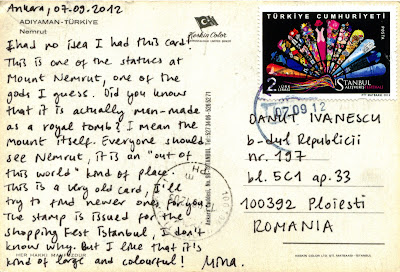 Ankara, 07.09.2012
ADIYAMAN-TÜRKİYE
Nemrut
Keskin Color
I had no idea I had this card!
This is one of the statues at
Mount Nemrut, one of the
gods I guess. Did you know
that it is actually man-made
as a royal tomb? I mean the
Mount itself. Everyone should
see Nemrut, it is an "out of
this world" kind of place.
This is a very old card, I'll
try to find newer ones for you.
The stamp is issued for the
shopping Fest Istanbul, I don't
know why. But I like that it's
kind of large and colourful! Mina.
HER HAKKI MAHFUZDUR
TÜRKİYE CUMHURİYETİ
POSTA
2
İSTANBUL
07.09.12
DANUT IVANESCU
b-dul Republicii
nr. 197
bl. 5C1 ap. 33
100392 Ploiesti
ROMANIA